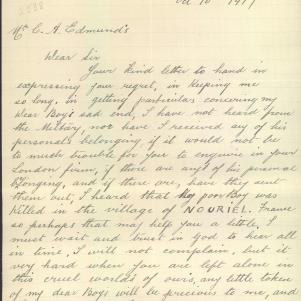 Oct 10 1917
2538
Mr E. A. Edmund's
Dear Sir
Your kind letter to hand in
expressing your regret, in keeping me
so long, in getting particulars concerning my
dear Boy's sad end, I have not heard from
the Military, nor have I received any of his
personals belonging, if it would not be
to much trouble for you to enquire in your
London firm, if those are any of his personal
belonging, and if there are, have they sent
them out, I heard that my poor Boy was
killed in the village of NOORIEL. France
so perhaps that may help you a little, I
must wait and trust in God to hear all
in time, I will not complain, but it
very hard when you are left alone in
this cruel worlds of ours, any little token
of my dear Boys will be precious to me, and